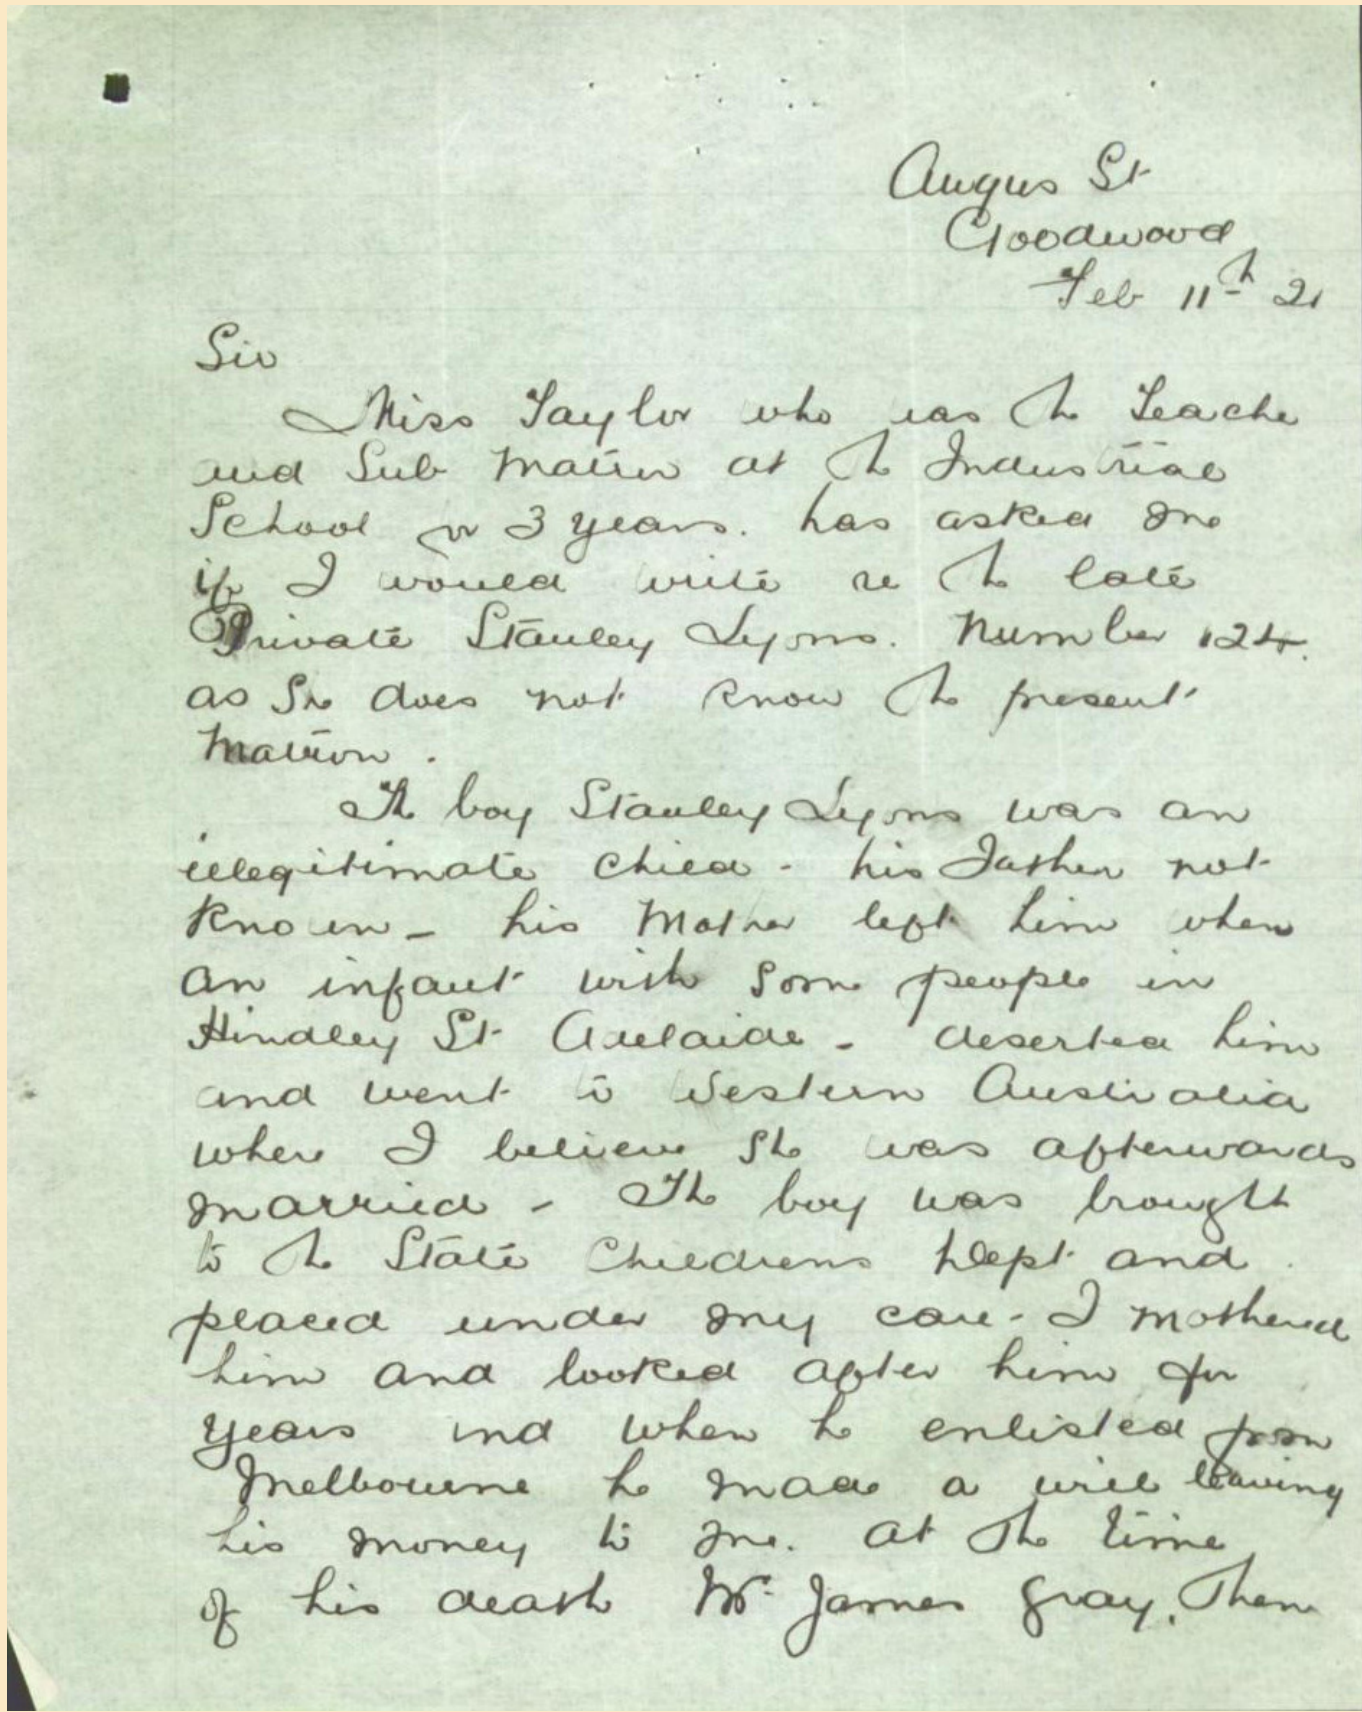 Angus St
Goodwood
Feb 11th 21
Sir
Miss Taylor who was the Teacher
and Sub Matron at the Industrial
School for 3 years. has asked me
if I would write re the late
Private Stanley Lyons. Number 124.
as She does not know the present
Matron.
The boy Stanley Lyons was an
illegitimate child - his Father not
Known - his Mother left him when
an infant with some people in
Hindley St Adelaide - deserted him
and went to Western Australia
where I believe She was afterwards
married - The boy was brought
to the State Childrens Dept and
placed under my care - I mothered
him and looked after him for
years and when he enlisted from
Melbourne he made a will leaving
his money to me. At the time
of his death Mr. James Gray, then